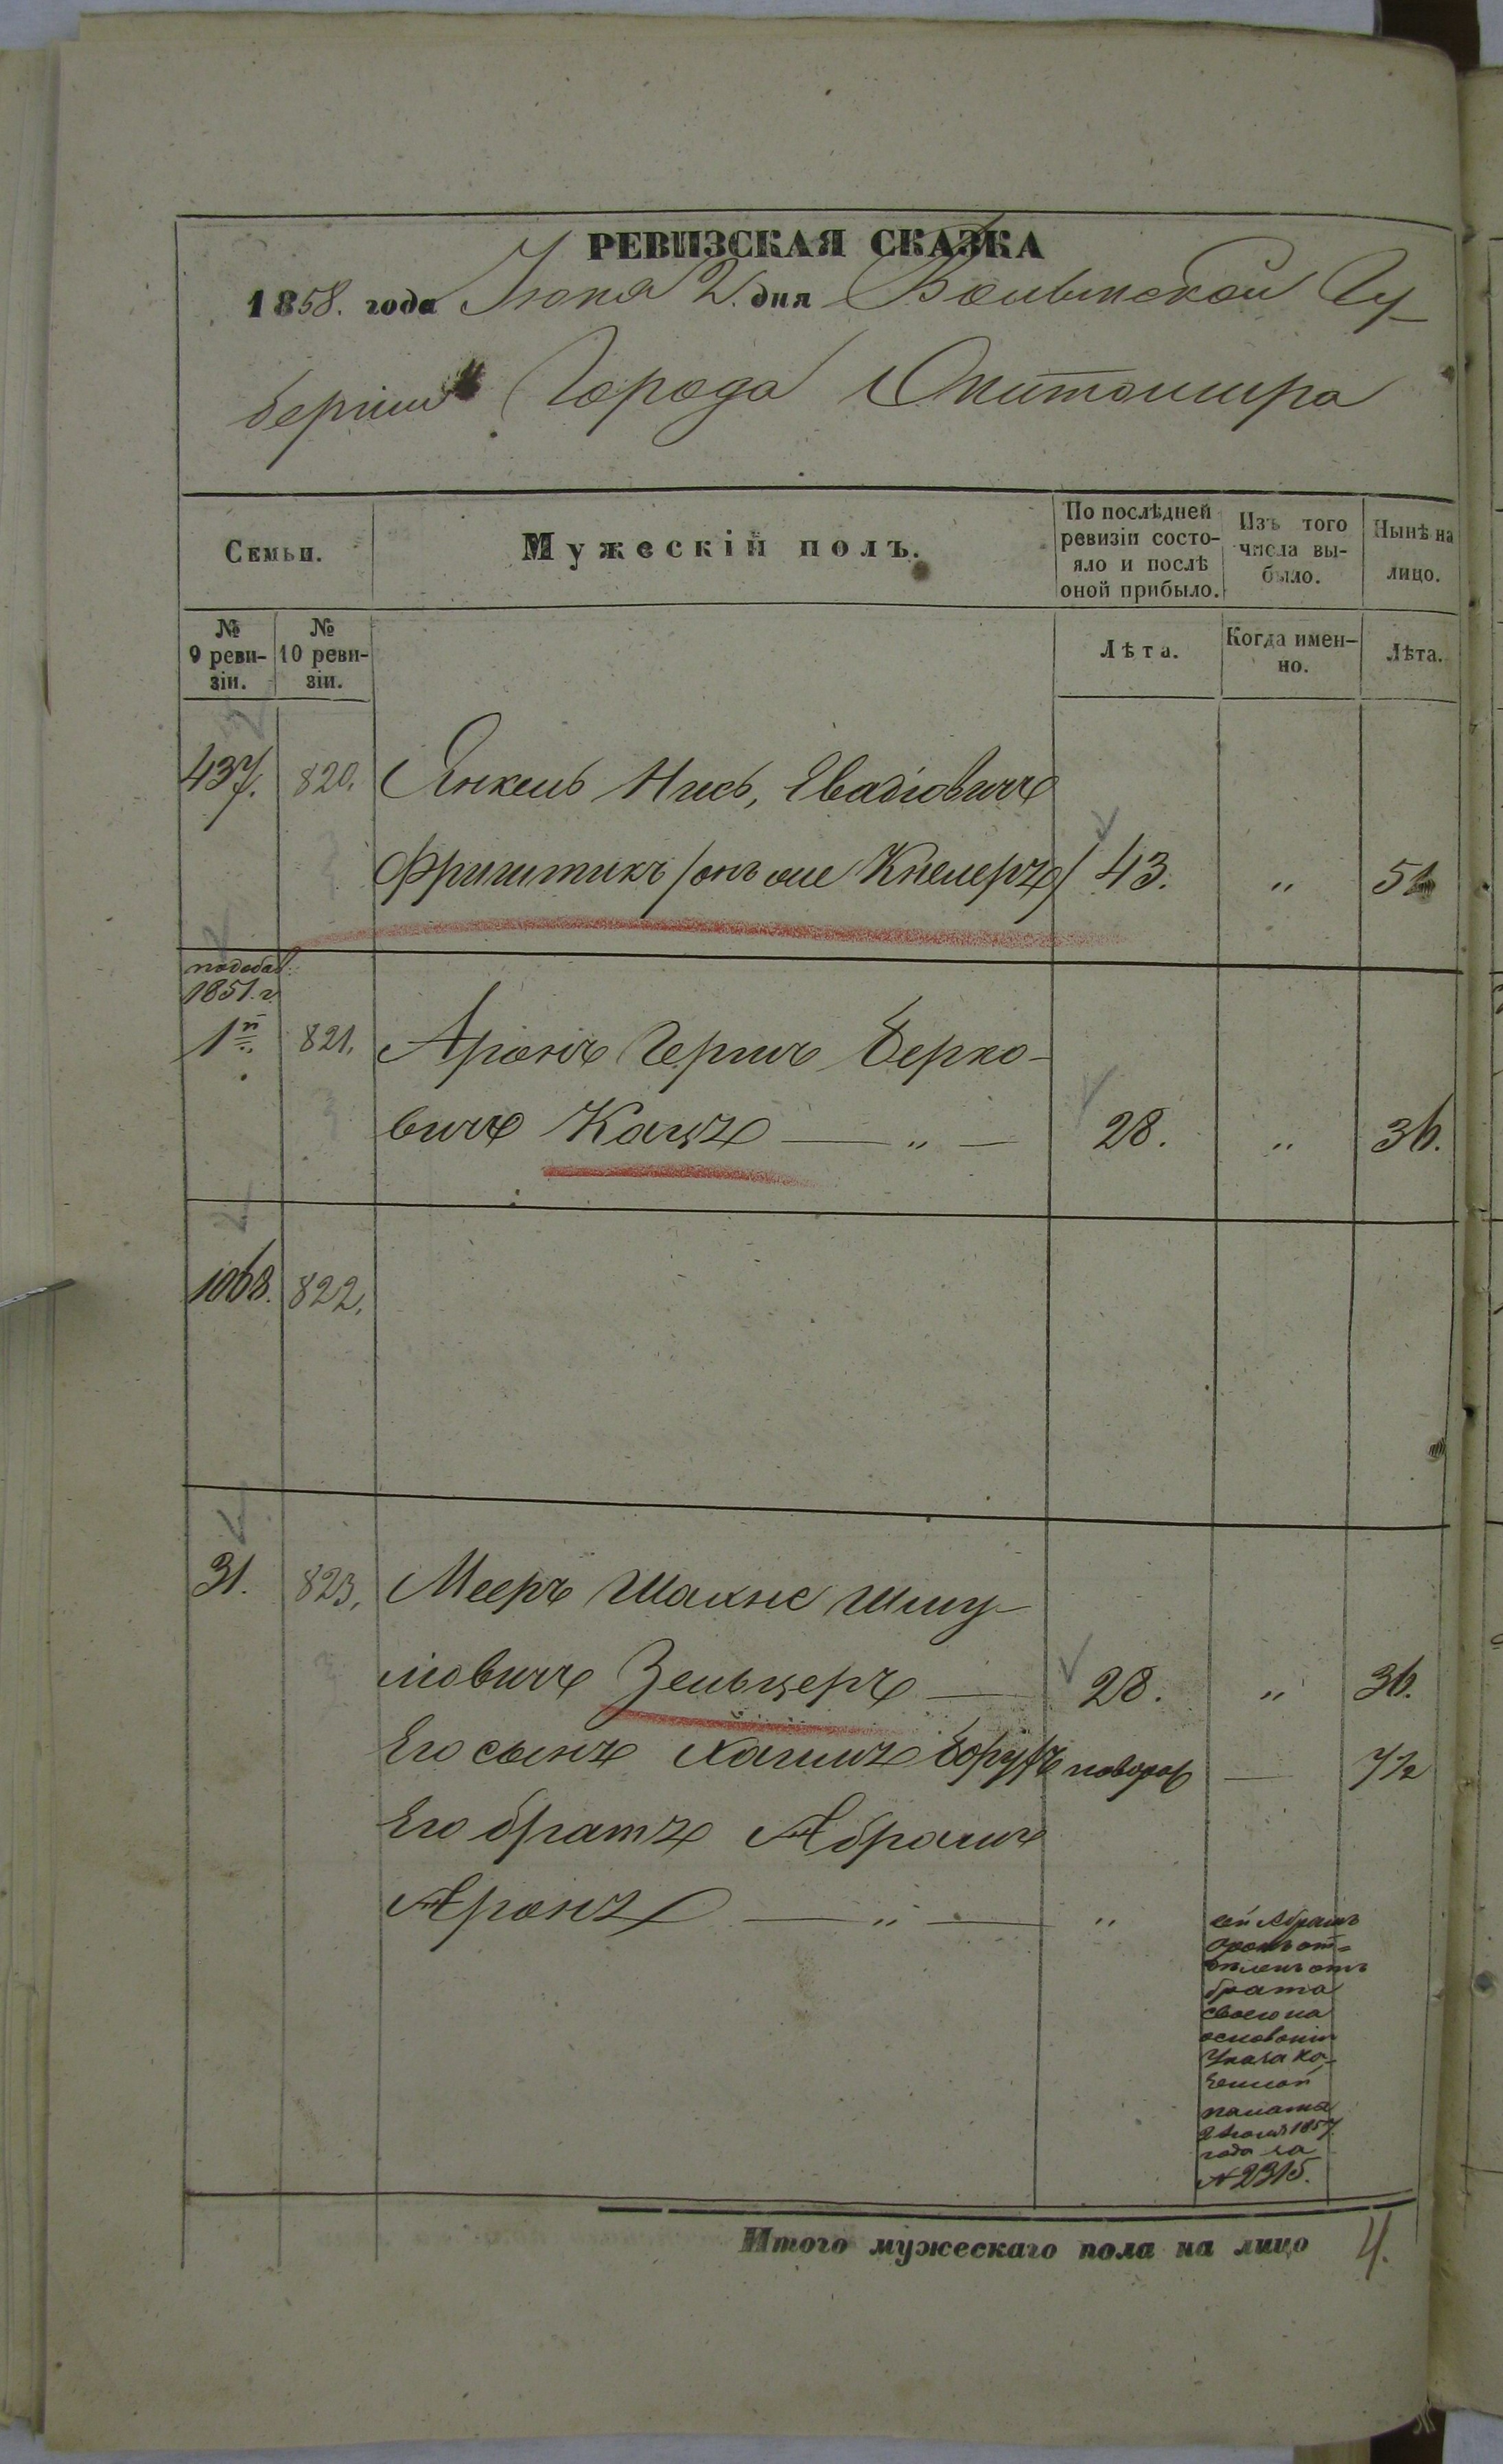 РЕВИЗСКАЯ СКАЗКА
1858. года Іюня 2. дня Волынской Гу-
берніи Города Житомира
Семьи.
Мужескій полъ.
По послѣдней ревизіи состо-
яло и послѣ оной прибыло.
Изъ того числа вы-
было.
Нынѣ на лицо.
№ 9 реви-
зіи.
№ 10 реви-
зіи.
Лѣта.
Когда имен-
но.
Лѣта.
437. 820. Янкель Нись,
Фриштикъ /онъ же Кнелеръ/ 43. " 51
1851. г.
1й 821. Аронъ Гершъ Берко-
вичъ Кацъ — " — 28. " 36.
1068. 822.
31. 823. Мееръ Шму-
ліовичъ Зельцеръ — 28. " 36.
Его сынъ Хаимъ Борухъ новорож — 7½
Его братъ Абрамъ
Аронъ — " — "
сей Абрамъ
Аронъ от-
дѣленъ отъ
брата
своего на
основаніи
Указа Ка-
зенной
палаты
1857
года за
№ 2315.
Итого мужескаго пола на лицо 4.